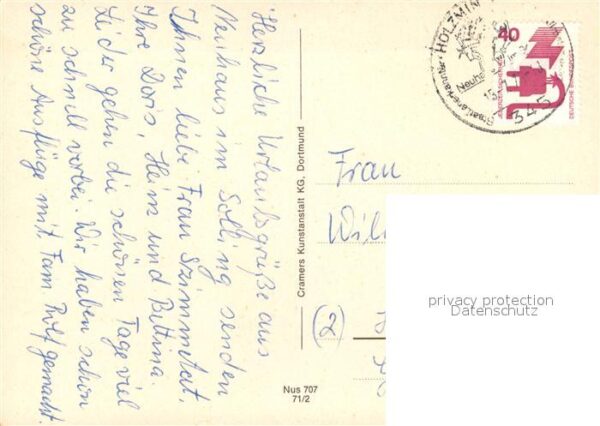 Herzliche Urlaubsgrüße aus
Neuhaus im Solling senden
Ihnen liebe Frau
Ihre Doris, Heinz und Bettina.
Leider gehen die schönen Tage viel
zu schnell vorbei. Wir haben schon
schöne Ausflüge mit Fam Rolf gemacht.
Cramers Kunstanstalt KG. Dortmund
Nus 707
71/2
HOLZMIN
Neuha
345
40
DEUTSCHE BUNDESPOST
Frau
Wil
(2)
privacy protection
Datenschutz